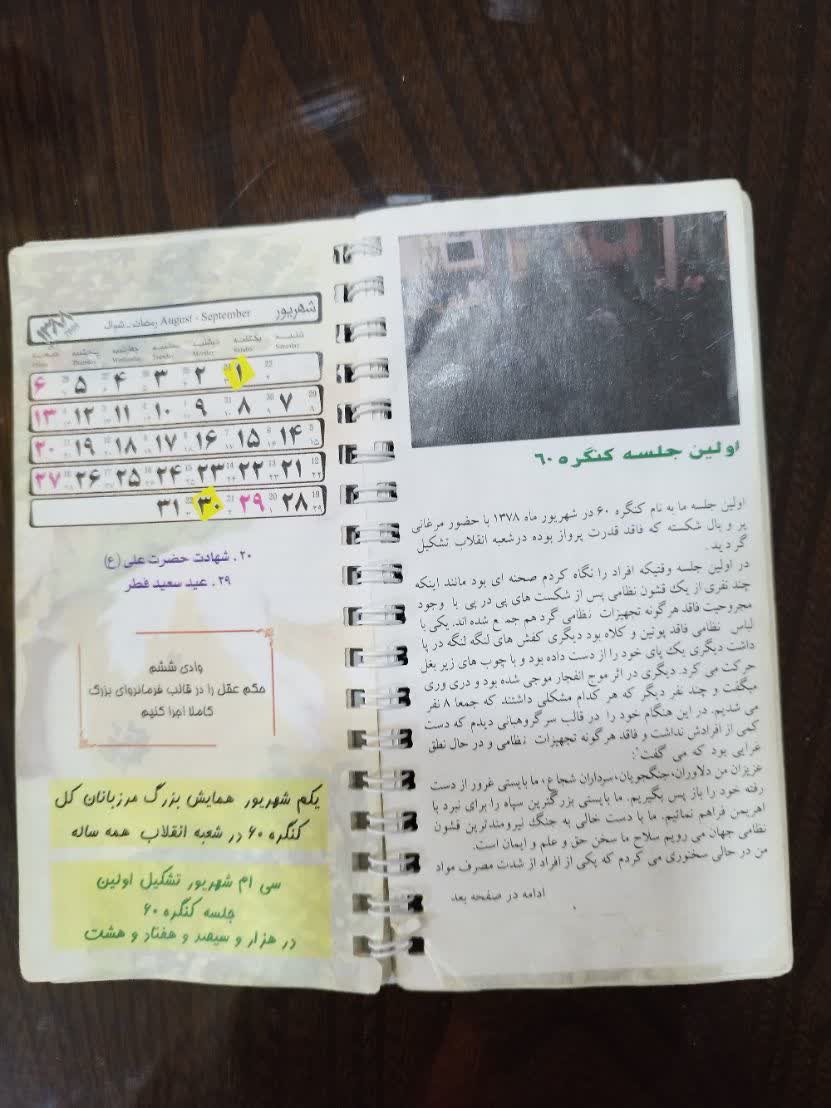 شهریور
August - September رمضان ـ شوال
۱۳۸۸
شنبه یکشنبه دوشنبه سه‌شنبه چهارشنبه پنجشنبه جمعه
Saturday Sunday Monday Tuesday Wednesday Thursday Friday
۱ ۲ ۳ ۴ ۵ ۶
۷ ۸ ۹ ۱۰ ۱۱ ۱۲ ۱۳
۱۴ ۱۵ ۱۶ ۱۷ ۱۸ ۱۹ ۲۰
۲۱ ۲۲ ۲۳ ۲۴ ۲۵ ۲۶ ۲۷
۲۸ ۲۹ ۳۰ ۳۱
۲۰ . شهادت حضرت علی (ع)
۲۹ . عید سعید فطر
وادی ششم
حکم عقل را در قالب فرمانروای بزرگ
کاملا اجرا کنیم
یکم شهریور همایش بزرگ مرزبانان کل
کنگره ۶۰ در شعبه انقلاب همه ساله
سی ام شهریور تشکیل اولین
جلسه کنگره ۶۰
در هزار و سیصد و هفتاد و هشت
اولین جلسه کنگره ۶۰
اولین جلسه ما به نام کنگره ۶۰ در شهریور ماه ۱۳۷۸ با حضور مرغانی
پر و بال شکسته که فاقد قدرت پرواز بوده درشعبه انقلاب تشکیل
گردید.
در اولین جلسه وقتیکه افراد را نگاه کردم صحنه ای بود مانند اینکه
چند نفری از یک قشون نظامی پس از شکست های پی در پی با وجود
مجروحیت فاقد هرگونه تجهیزات نظامی گرد هم جمع شده اند. یکی با
لباس نظامی فاقد پوتین و کلاه بود دیگری کفش های لنگه لنگه در پا
داشت دیگری یک پای خود را از دست داده بود و با چوب های زیر بغل
حرکت می کرد. دیگری در اثر موج انفجار موجی شده بود و دری وری
میگفت و چند نفر دیگر که هر کدام مشکلی داشتند که جمعا ۸ نفر
می شدیم. در این هنگام خود را در قالب سرگروهبانی دیدم که دست
کمی از افرادش نداشت و فاقد هرگونه تجهیزات نظامی و در حال نطق
غرایی بود که می گفت:
عزیزان من دلاوران، جنگجویان، سرداران شجاع، ما بایستی غرور از دست
رفته خود را باز پس بگیریم. ما بایستی بزرگترین سپاه را برای نبرد با
اهریمن فراهم نمائیم. ما با دست خالی به جنگ نیرومندترین قشون
نظامی جهان می رویم سلاح ما سخن حق و علم و ایمان است.
من در حالی سخنوری می کردم که یکی از افراد از شدت مصرف مواد
ادامه در صفحه بعد